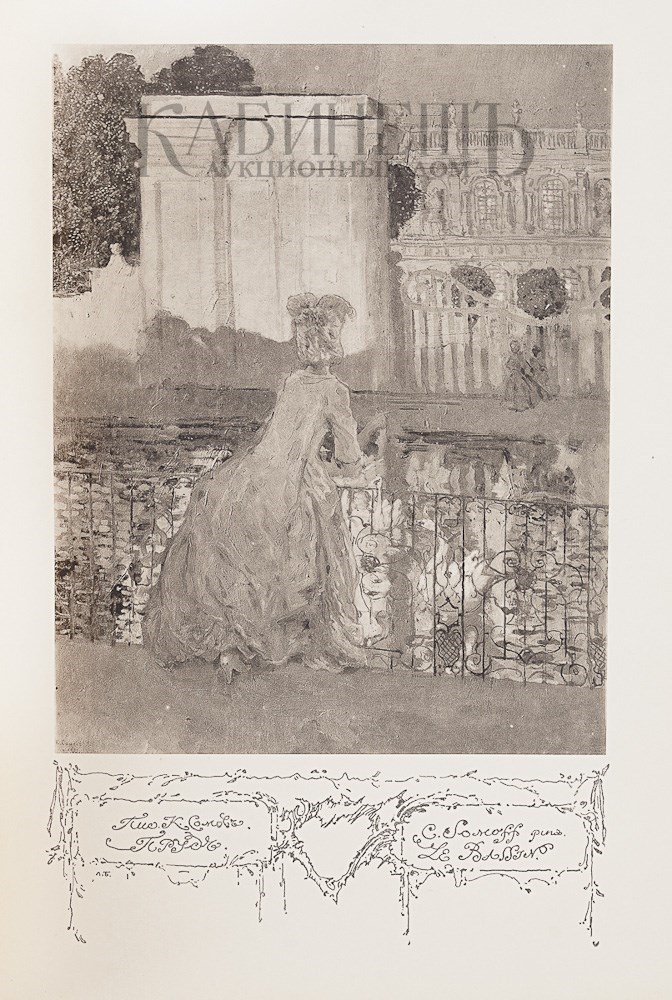 КАБИНЕТЪ
АУКЦИОННЫЙ ДОМ
Пис. К. Сомовъ.
ПРУДЪ.
C. Somoff pinx.
LE BASSIN.
Л.Б.